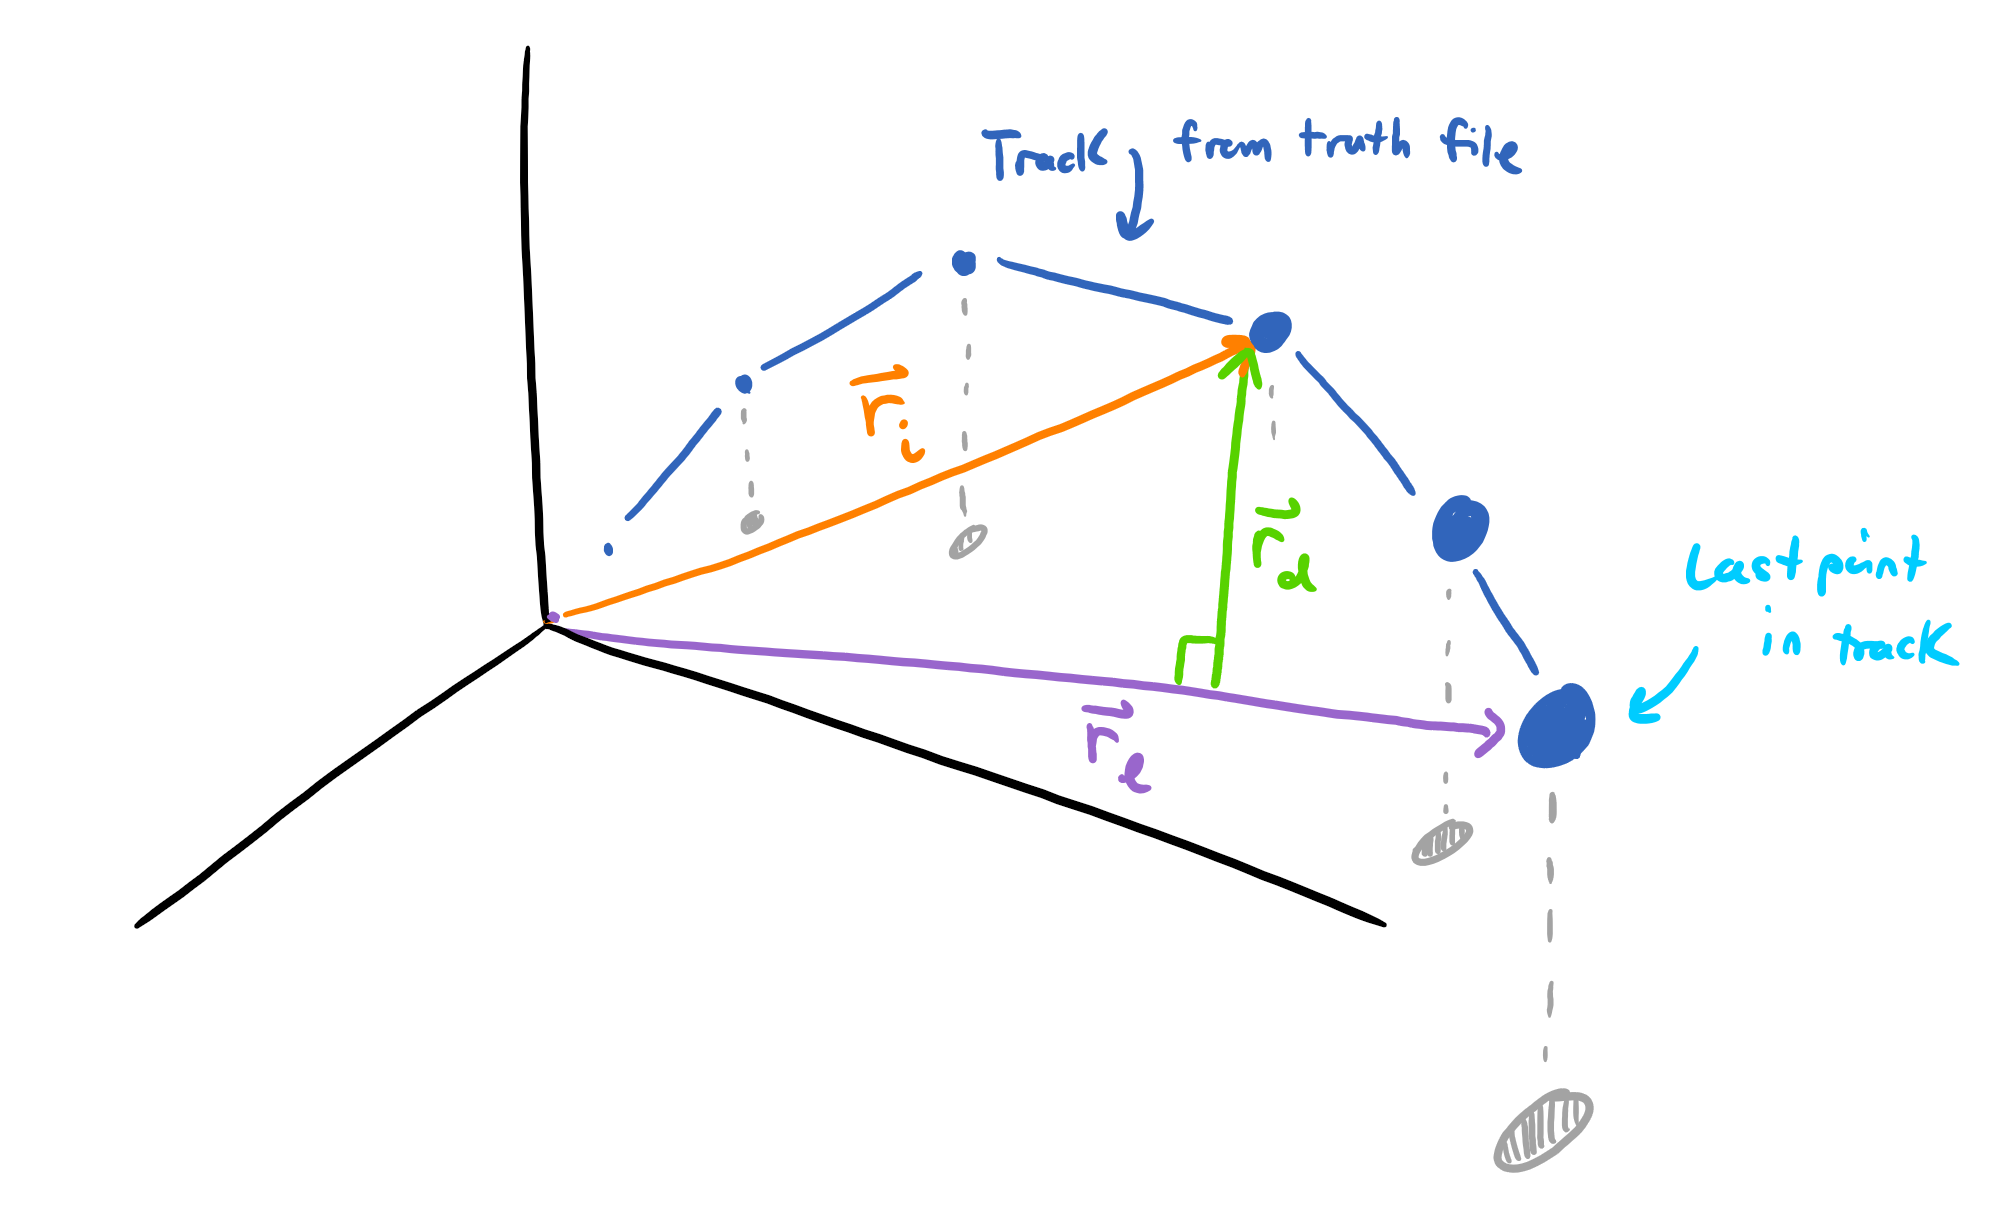 Track from truth file
r⃗ᵢ
r⃗_d
Last point
in track
r⃗_l